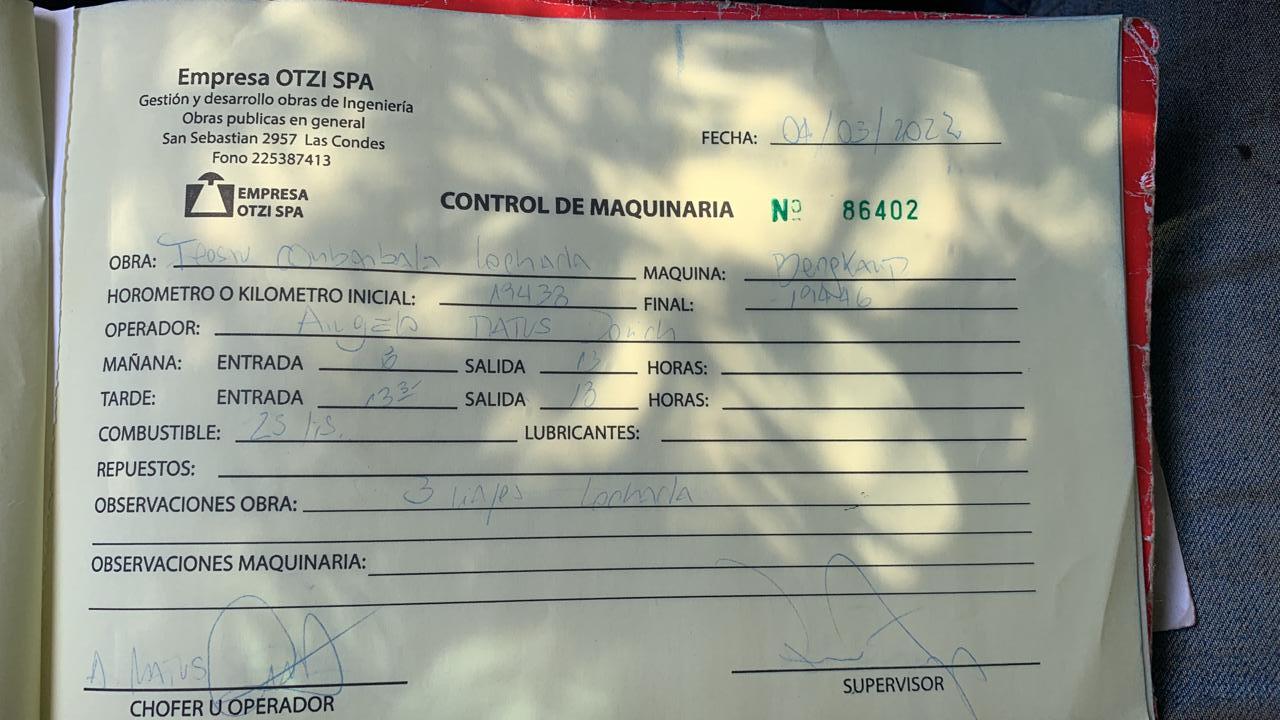 Empresa OTZI SPA
Gestión y desarrollo obras de Ingeniería
Obras publicas en general
San Sebastian 2957 Las Condes
Fono 225387413
EMPRESA
OTZI SPA
FECHA: 04/03/2022
CONTROL DE MAQUINARIA Nº 86402
OBRA: MAQUINA:
HOROMETRO O KILOMETRO INICIAL: 19438 FINAL: 19446
OPERADOR: Angelo MATUS
MAÑANA: ENTRADA 8 SALIDA 13 HORAS:
TARDE: ENTRADA SALIDA 18 HORAS:
COMBUSTIBLE: 25 LUBRICANTES:
REPUESTOS:
OBSERVACIONES OBRA: 3 viajes
OBSERVACIONES MAQUINARIA:
A MATUS
CHOFER U OPERADOR
SUPERVISOR